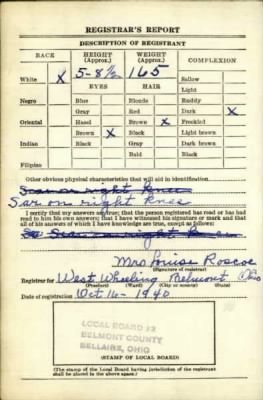 REGISTRAR'S REPORT
DESCRIPTION OF REGISTRANT
RACE HEIGHT (Approx.) WEIGHT (Approx.) COMPLEXION
White X 5-8½ 165 Sallow
EYES HAIR Light
Negro Blue Blonde Ruddy
Gray Red Dark X
Oriental Hazel Brown X Freckled
Brown X Black Light brown
Indian Black Gray Dark brown
Bald Black
Filipino
Other obvious physical characteristics that will aid in identification
Scar on right knee
Scar on right knee
I certify that my answers are true; that the person registered has read or has had
read to him his own answers; that I have witnessed his signature or mark and that
all of his answers of which I have knowledge are true, except as follows:
Scar on right knee
Mrs Louise Roscoe
(Signature of registrar)
Registrar for West Wheeling Belmont Ohio
(Precinct) (Ward) (City or county) (State)
Date of registration Oct 16 - 1940
LOCAL BOARD #2
BELMONT COUNTY
BELLAIRE, OHIO
(STAMP OF LOCAL BOARD)
(The stamp of the Local Board having jurisdiction of the registrant
shall be placed in the above space.)